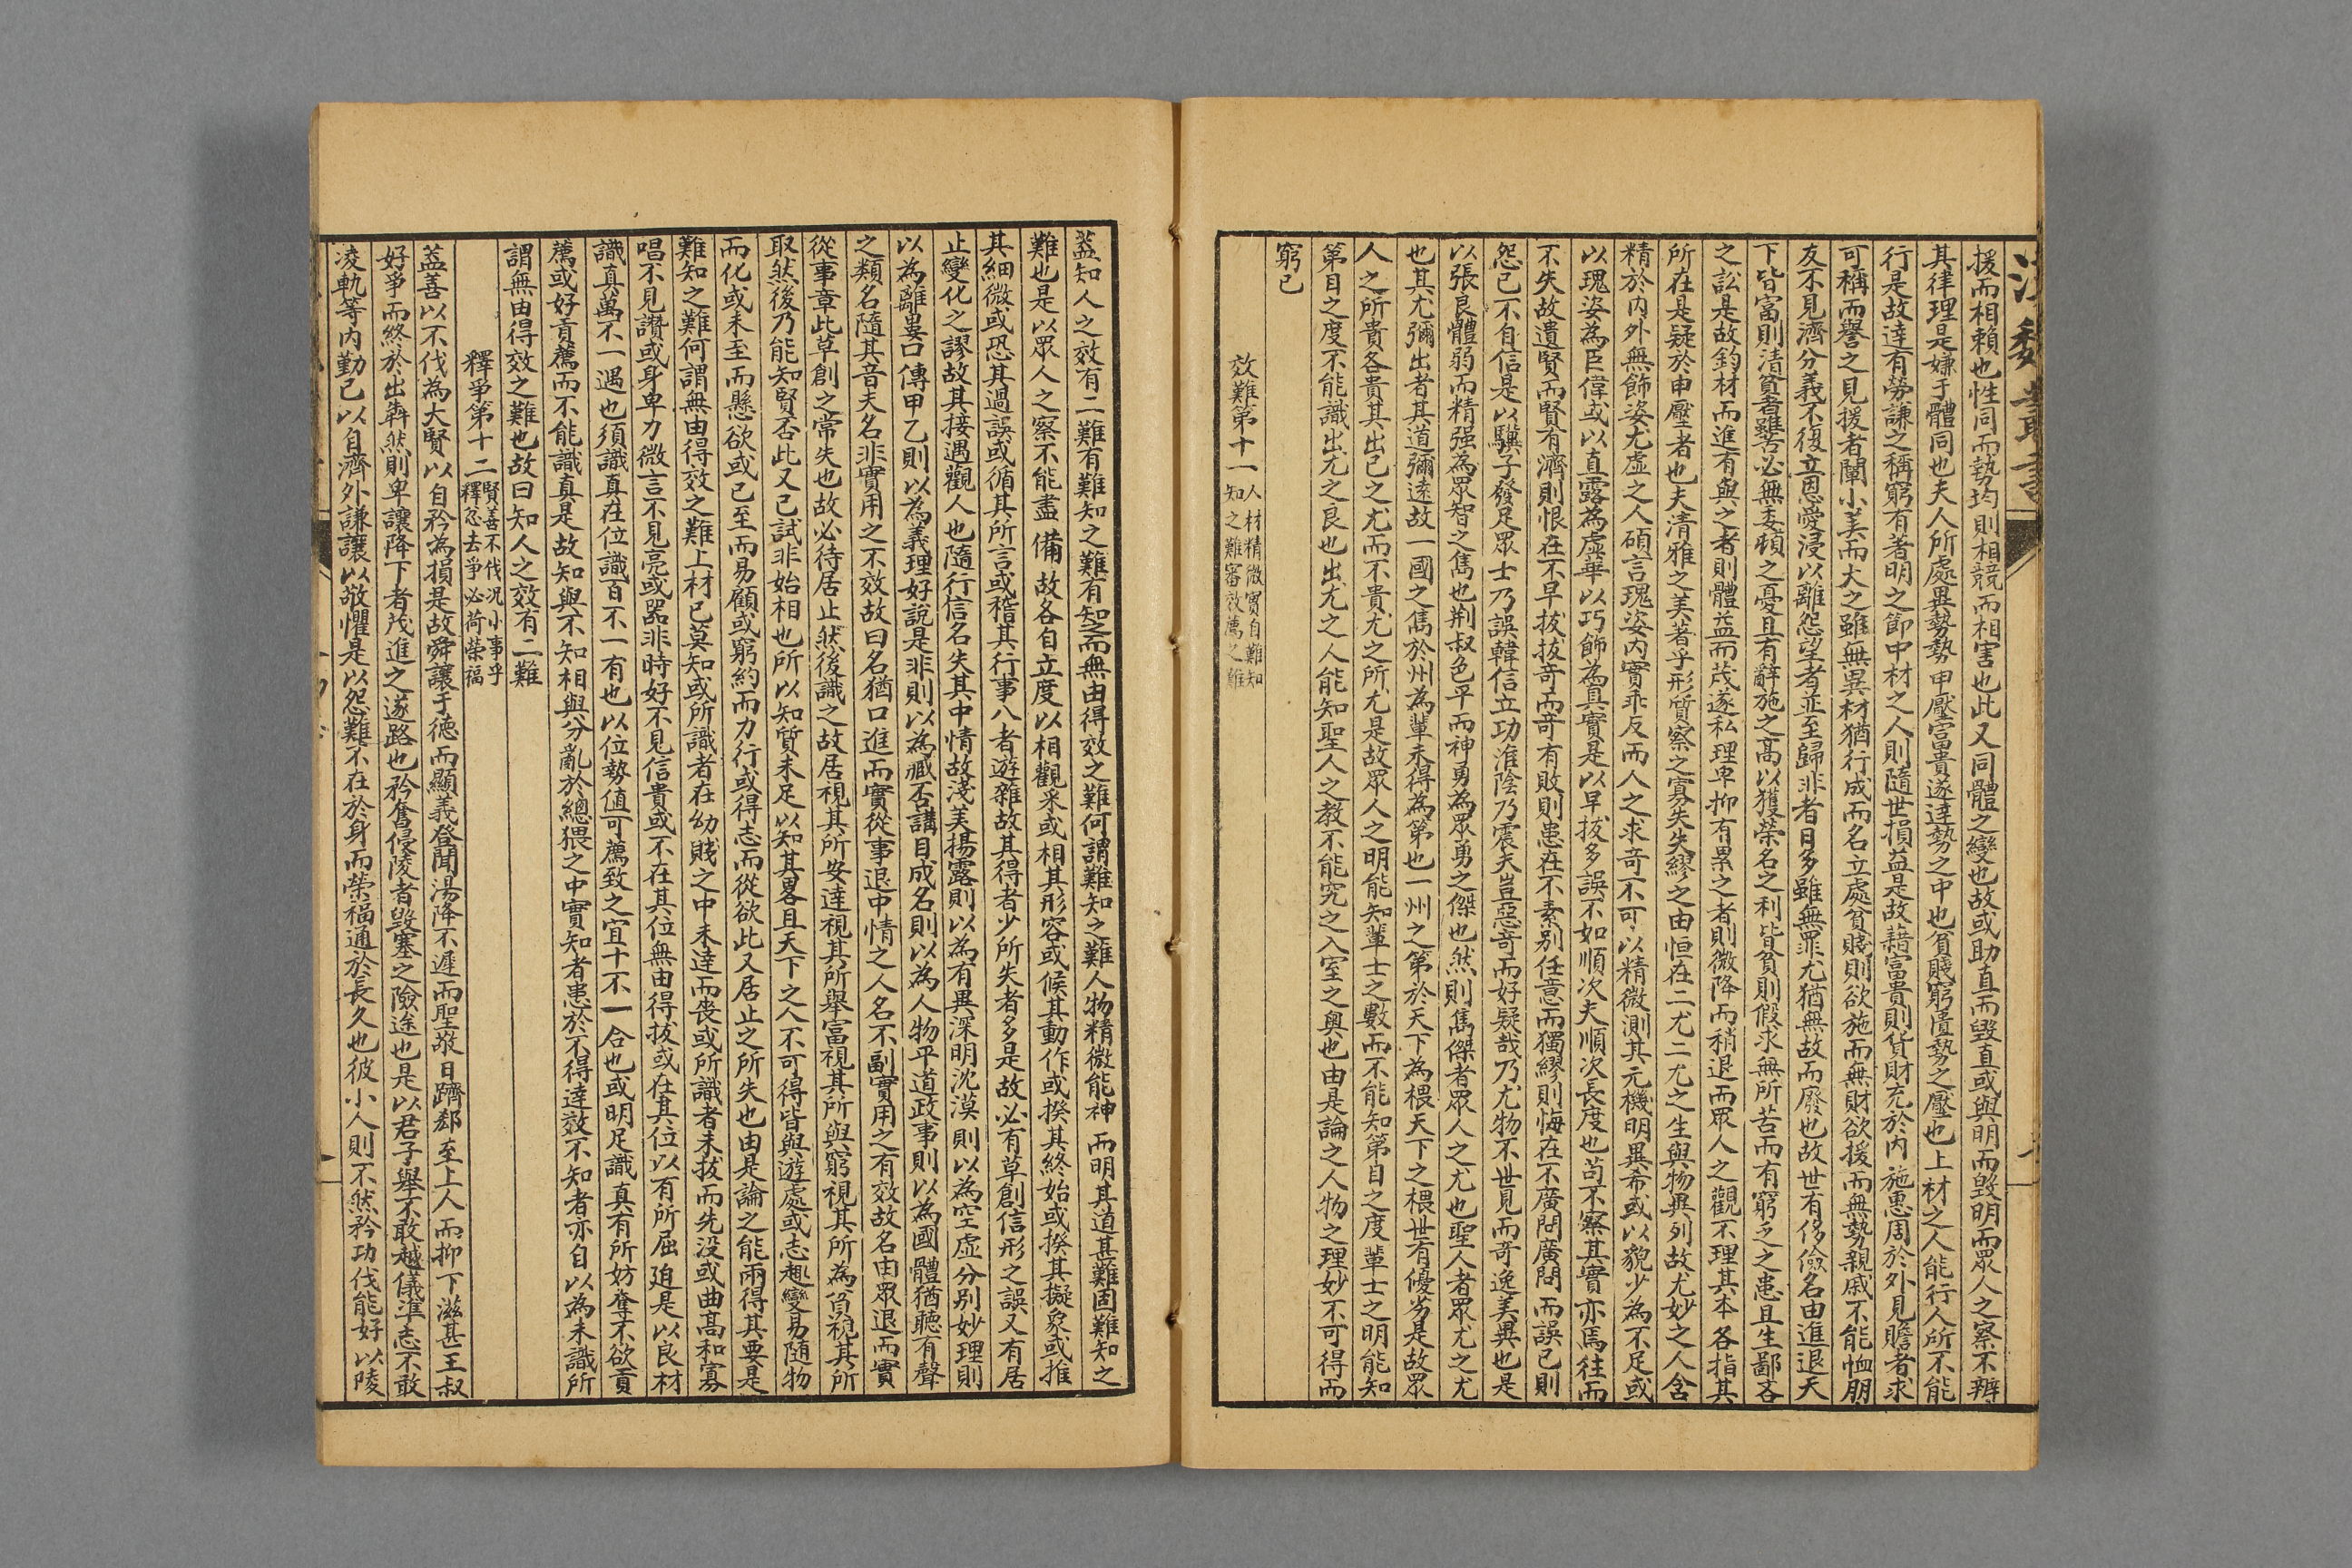 援而相賴也性同而勢均則相競而相害也此又同體之變也故或助直而毀直或與明而毀明而眾人之察不辨
其律理是嫌于體同也夫人所處異勢勢有申壓富貴遂達勢之申也貧賤窮匱勢之壓也上材之人能行人所不能
行是故達有勞謙之稱窮有著明之節中材之人則隨世損益是故藉富貴則貨財充於內施惠周於外見贍者求
可稱而譽之見援者闡小美而大之雖無異材猶行成而名立處貧賤則欲施而無財欲援而無勢親戚不能恤朋
友不見濟分義不復立恩愛浸以離怨望者並至歸非者日多雖無罪尤猶無故而廢也故世有侈儉名由進退天
下皆富則清貧者雖苦必無委頓之憂且有辭施之高以獲榮名之利皆貧則假求無所苦而有窮乏之患且生鄙吝
之訟是故鈞材而進有與之者則體益而茂遂私理卑抑有累之者則微降而稍退而眾人之觀不理其本各指其
所在是疑於申壓者也夫清雅之美著乎形質察之寡失失繆之由恒在二尤二尤之生與物異列故尤妙之人含
精於內外無飾姿尤虛之人碩言瑰姿內實乖反而人之求奇不可以精微測其元機明異希或以貌少為不足或
以瑰姿為巨偉或以直露為虛華以巧飾為真實是以早拔多誤不如順次夫順次長度也茍不察其實亦焉往而
不失故遺賢而賢有濟則恨在不早拔拔奇而奇有敗則患在不素别任意而獨繆則悔在不廣問廣問而誤己則
怨己不自信是以驥子發足眾士乃誤韓信立功淮陰乃震夫豈惡奇而好疑哉乃尤物不世見而奇逸美異也是
以張良體弱而精强為眾智之雋也荆叔色平而神勇為眾勇之傑也然則雋傑者眾人之尤也聖人者眾尤之尤
也其尤彌出者其道彌遠故一國之雋於州為輩未得為第也一州之第於天下為椳天下之椳世有優劣是故眾
人之所貴各貴其出己之尤而不貴尤之所尤是故眾人之明能知輩士之數而不能知第目之度輩士之明能知
第目之度不能識出尤之良也出尤之人能知聖人之教不能究之入室之奥也由是論之人物之理妙不可得而
窮已
效難第十一 人材精微實自難知
知之難審效薦之難
葢知人之效有二難有難知之難有知之而無由得效之難何謂難知之難人物精微能神而明其道甚難固難知之
難也是以眾人之察不能盡備故各自立度以相觀采或相其形容或候其動作或揆其終始或揆其擬象或推
其細微或恐其過誤或循其所言或稽其行事八者遊雜故其得者少所失者多是故必有草創信形之誤又有居
止變化之謬故其接遇觀人也隨行信名失其中情故淺美揚露則以為有異深明沈漠則以為空虛分别妙理則
以為離婁口傳甲乙則以為義理好說是非則以為臧否講目成名則以為人物平道政事則以為國體猶聽有聲
之類名隨其音夫名非實用之不效故曰名猶口進而實從事退中情之人名不副實用之有效故名由眾退而實
從事章此草創之常失也故必待居止然後識之故居視其所安達視其所舉富視其所與窮視其所為貧視其所
取然後乃能知賢否此又已試非始相也所以知質未足以知其畧且天下之人不可得皆與遊處或志趣變易隨物
而化或未至而懸欲或已至而易顧或窮約而力行或得志而從欲此又居止之所失也由是論之能兩得其要是
難知之難何謂無由得效之難上材已莫知或所識者在幼賤之中未達而喪或所識者未拔而先沒或曲高和寡
唱不見讚或身卑力微言不見亮或器非時好不見信貴或不在其位無由得拔或在其位以有所屈迫是以良材
識真萬不一遇也須識真在位識百不一有也以位勢值可薦致之宜十不一合也或明足識真有所妨奪不欲貢
薦或好貢薦而不能識真是故知與不知相與分亂於總猥之中實知者患於不得達效不知者亦自以為未識所
謂無由得效之難也故曰知人之效有二難
釋爭第十二 賢善不伐况小事乎
釋忿去爭必荷榮福
葢善以不伐為大賢以自矜為損是故舜讓于德而顯義登聞湯降不遲而聖敬日躋郄至上人而抑下滋甚王叔
好爭而終於出犇然則卑讓降下者茂進之遂路也矜奮侵陵者毀塞之險途也是以君子舉不敢越儀準志不敢
凌軌等內勤己以自濟外謙讓以敬懼是以怨難不在於身而榮福通於長久也彼小人則不然矜功伐能好以陵